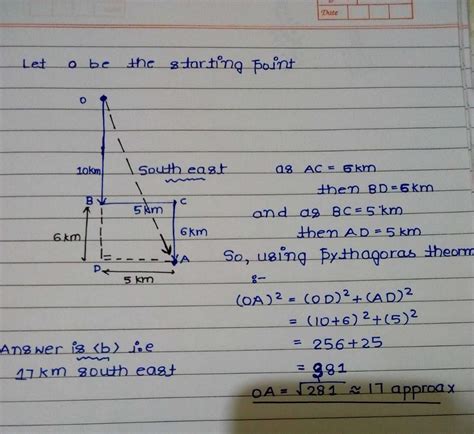 Date
Let O be the starting point
O
10km
South east
B
C
5km
6km
6km
D
A
5 km
as AC = 6km
then BD=6km
and as BC=5km
then AD = 5km
So, using pythagoras theorm
:-
(OA)² = (OD)²+(AD)²
= (10+6)²+(5)²
= 256+25
= 381
OA = √281 ≈ 17 approax
Answer is (b) i.e
17km south east